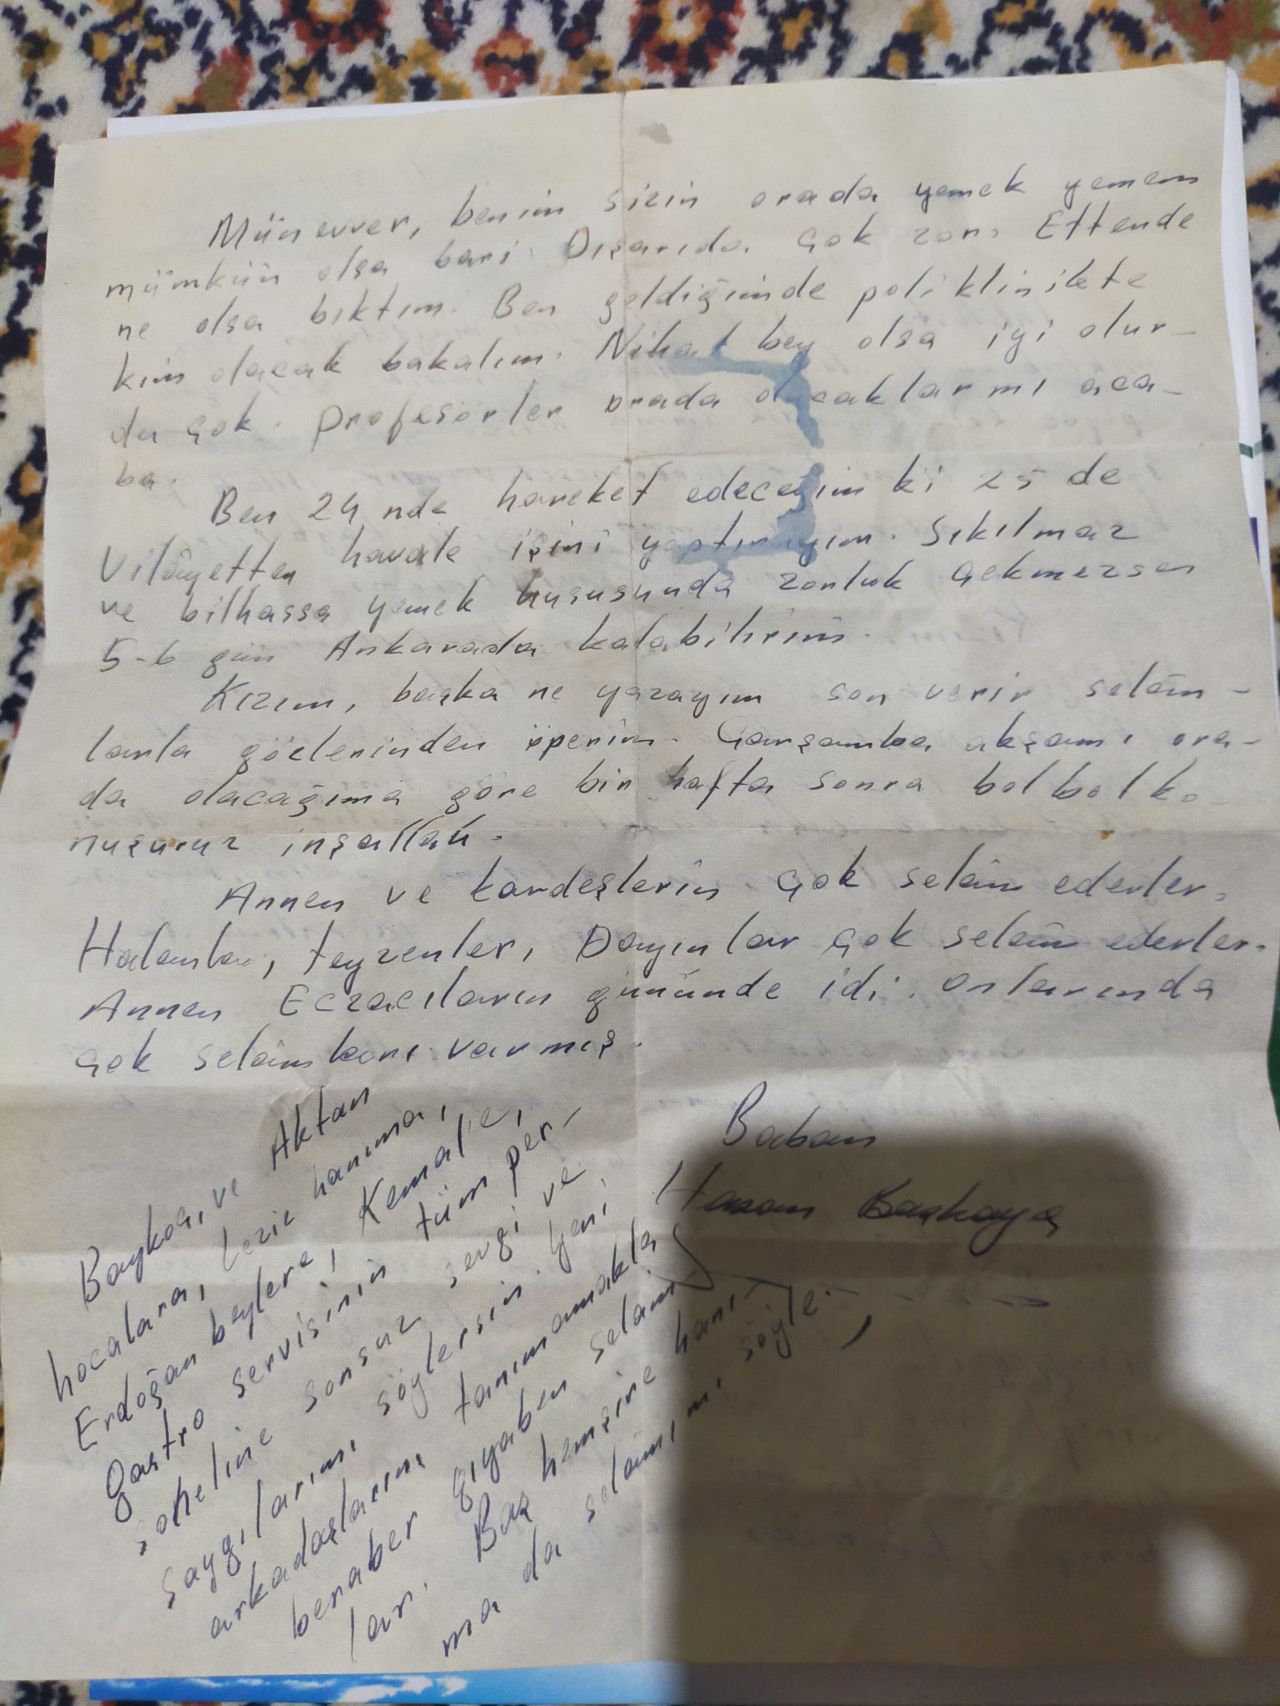 Münevver, benim sizin orada yemek yemem
mümkün olsa bari. Dışarıda çok zor. Ettende
ne olsa bıktım. Ben geldiğimde poliklinikte
kim olacak bakalım. Nihat bey olsa iyi olur-
du çok. Profesörler orada olacaklarmı aca-
ba.
Ben 24 nde hareket edeceğim ki 25 de
Vilâyetten havale işini yaptırayım. Sıkılmaz
ve bilhassa yemek hususunda zorluk çekmezsem
5-6 gün Ankarada kalabilirim.
Kızım, başka ne yazayım son verir selâm-
larla gözlerinden öperim. Çarşamba akşamı ora-
da olacağıma göre bir hafta sonra bol bol ko-
nuşuruz inşallah.
Annen ve kardeşlerin çok selâm ederler.
Halanlar, teyzenler, Dayınlar çok selâm ederler.
Annen Eczacıların gününde idi. Onlarında
çok selâmları varmış.
Baban
Hasan Başkaya
ve Aktan
hocalara, hanıma,
Erdoğan beylere, Kemal'e,
Gastro servisinin tüm per-
soneline sonsuz sevgi ve
saygılarımı söylersin. Yeni
arkadaşlarını tanımamakla
beraber gıyaben selâm
lar. Baş hemşire hanı-
ma da selâmımı söyle.